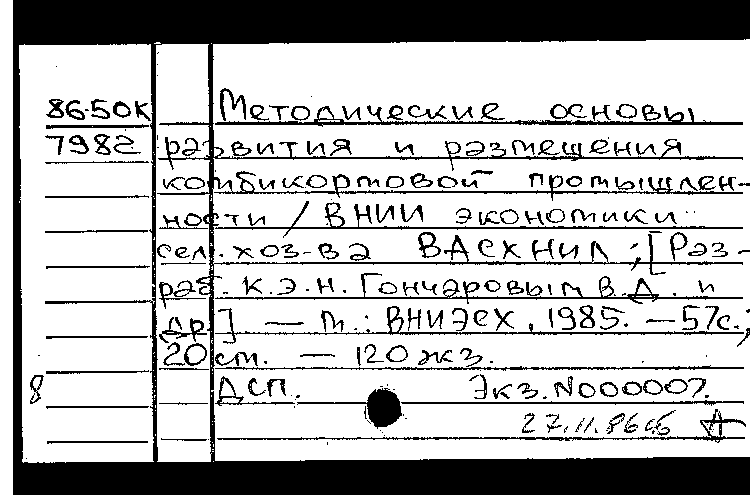 86-50К Методические основы
7982 развития и размещения
комбикормовой промышлен-
ности / ВНИИ экономики
сел. хоз-ва ВАСХНИЛ ; [Раз-
раб. к.э.н. Гончаровым В.Д. и
др.] — М.: ВНИЭСХ, 1985. — 57с.;
20 см. — 120 экз.
8 ДСП. Экз. N000007.
27.11.86